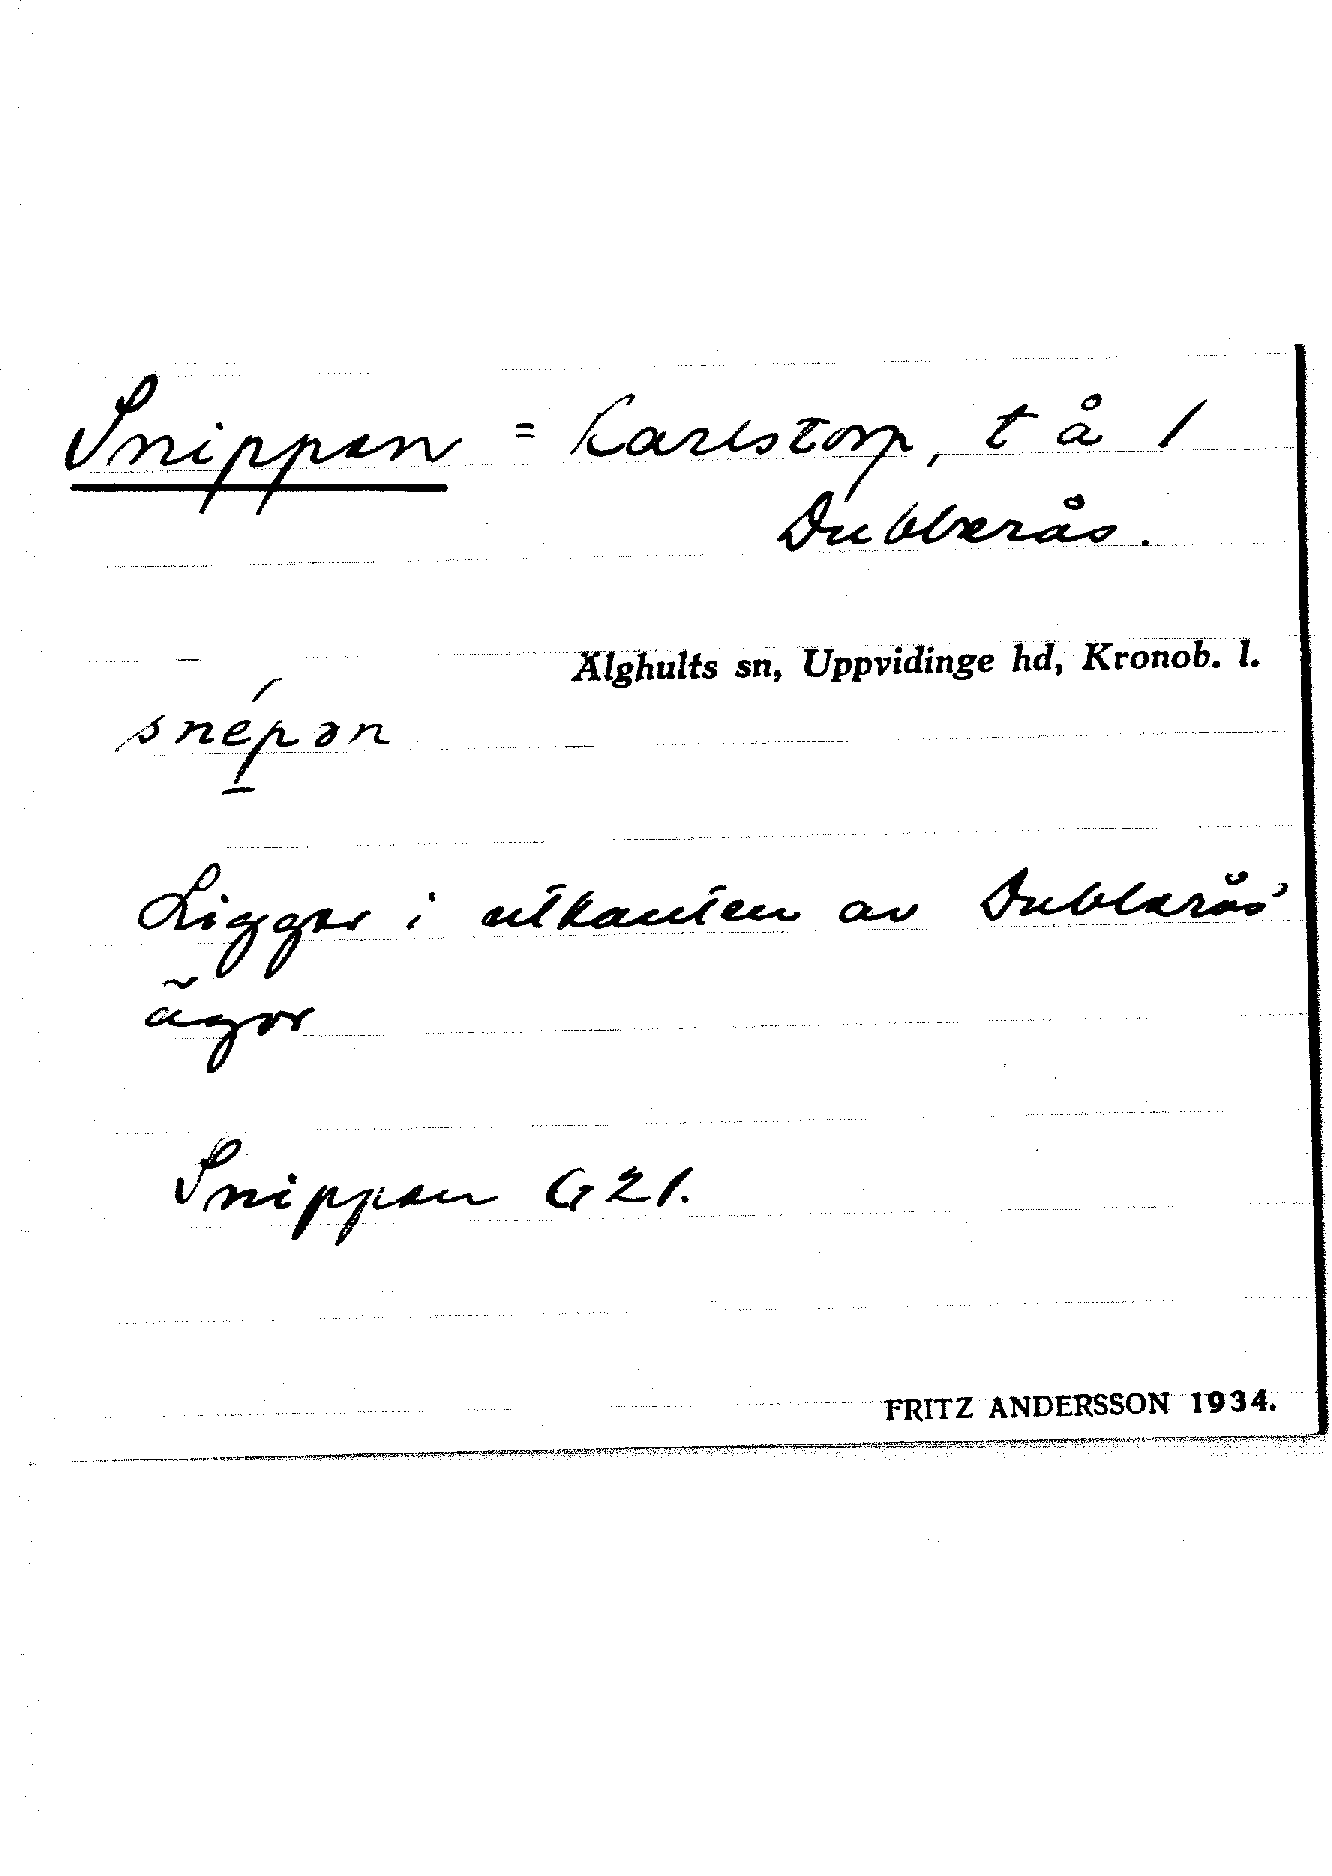 Snippen = Karlstorp, t å 1
Dubblerås.
Älghults sn, Uppvidinge hd, Kronob. l.
snépən
Ligger i utkanten av Dubblerås'
ägor
Snippen G 21.
FRITZ ANDERSSON 1934.